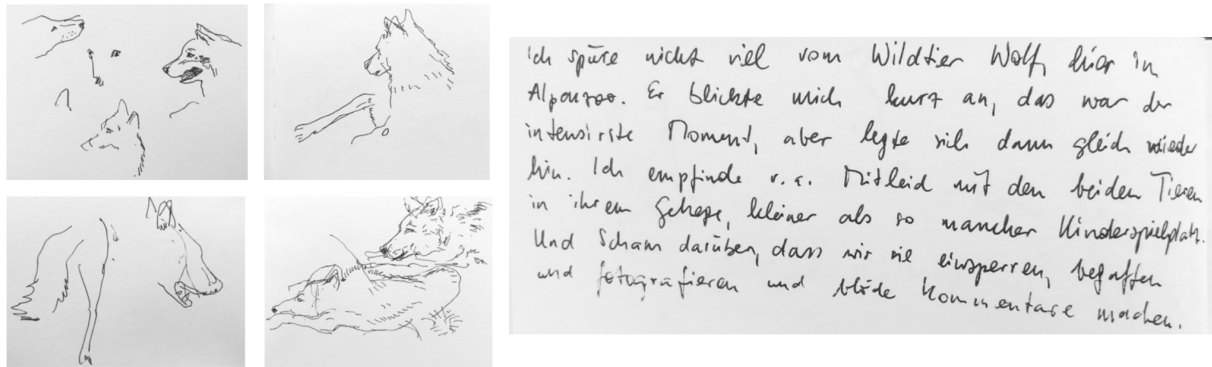 Ich spüre nicht viel vom Wildtier Wolf, hier im
Alpenzoo. Er blickte mich kurz an, das war der
intensivste Moment, aber legte sich dann gleich wieder
hin. Ich empfinde v. a. Mitleid mit den beiden Tieren
in ihrem Gehege, kleiner als so mancher Kinderspielplatz.
Und Scham darüber, dass wir sie einsperren, begaffen
und fotografieren und blöde Kommentare machen.